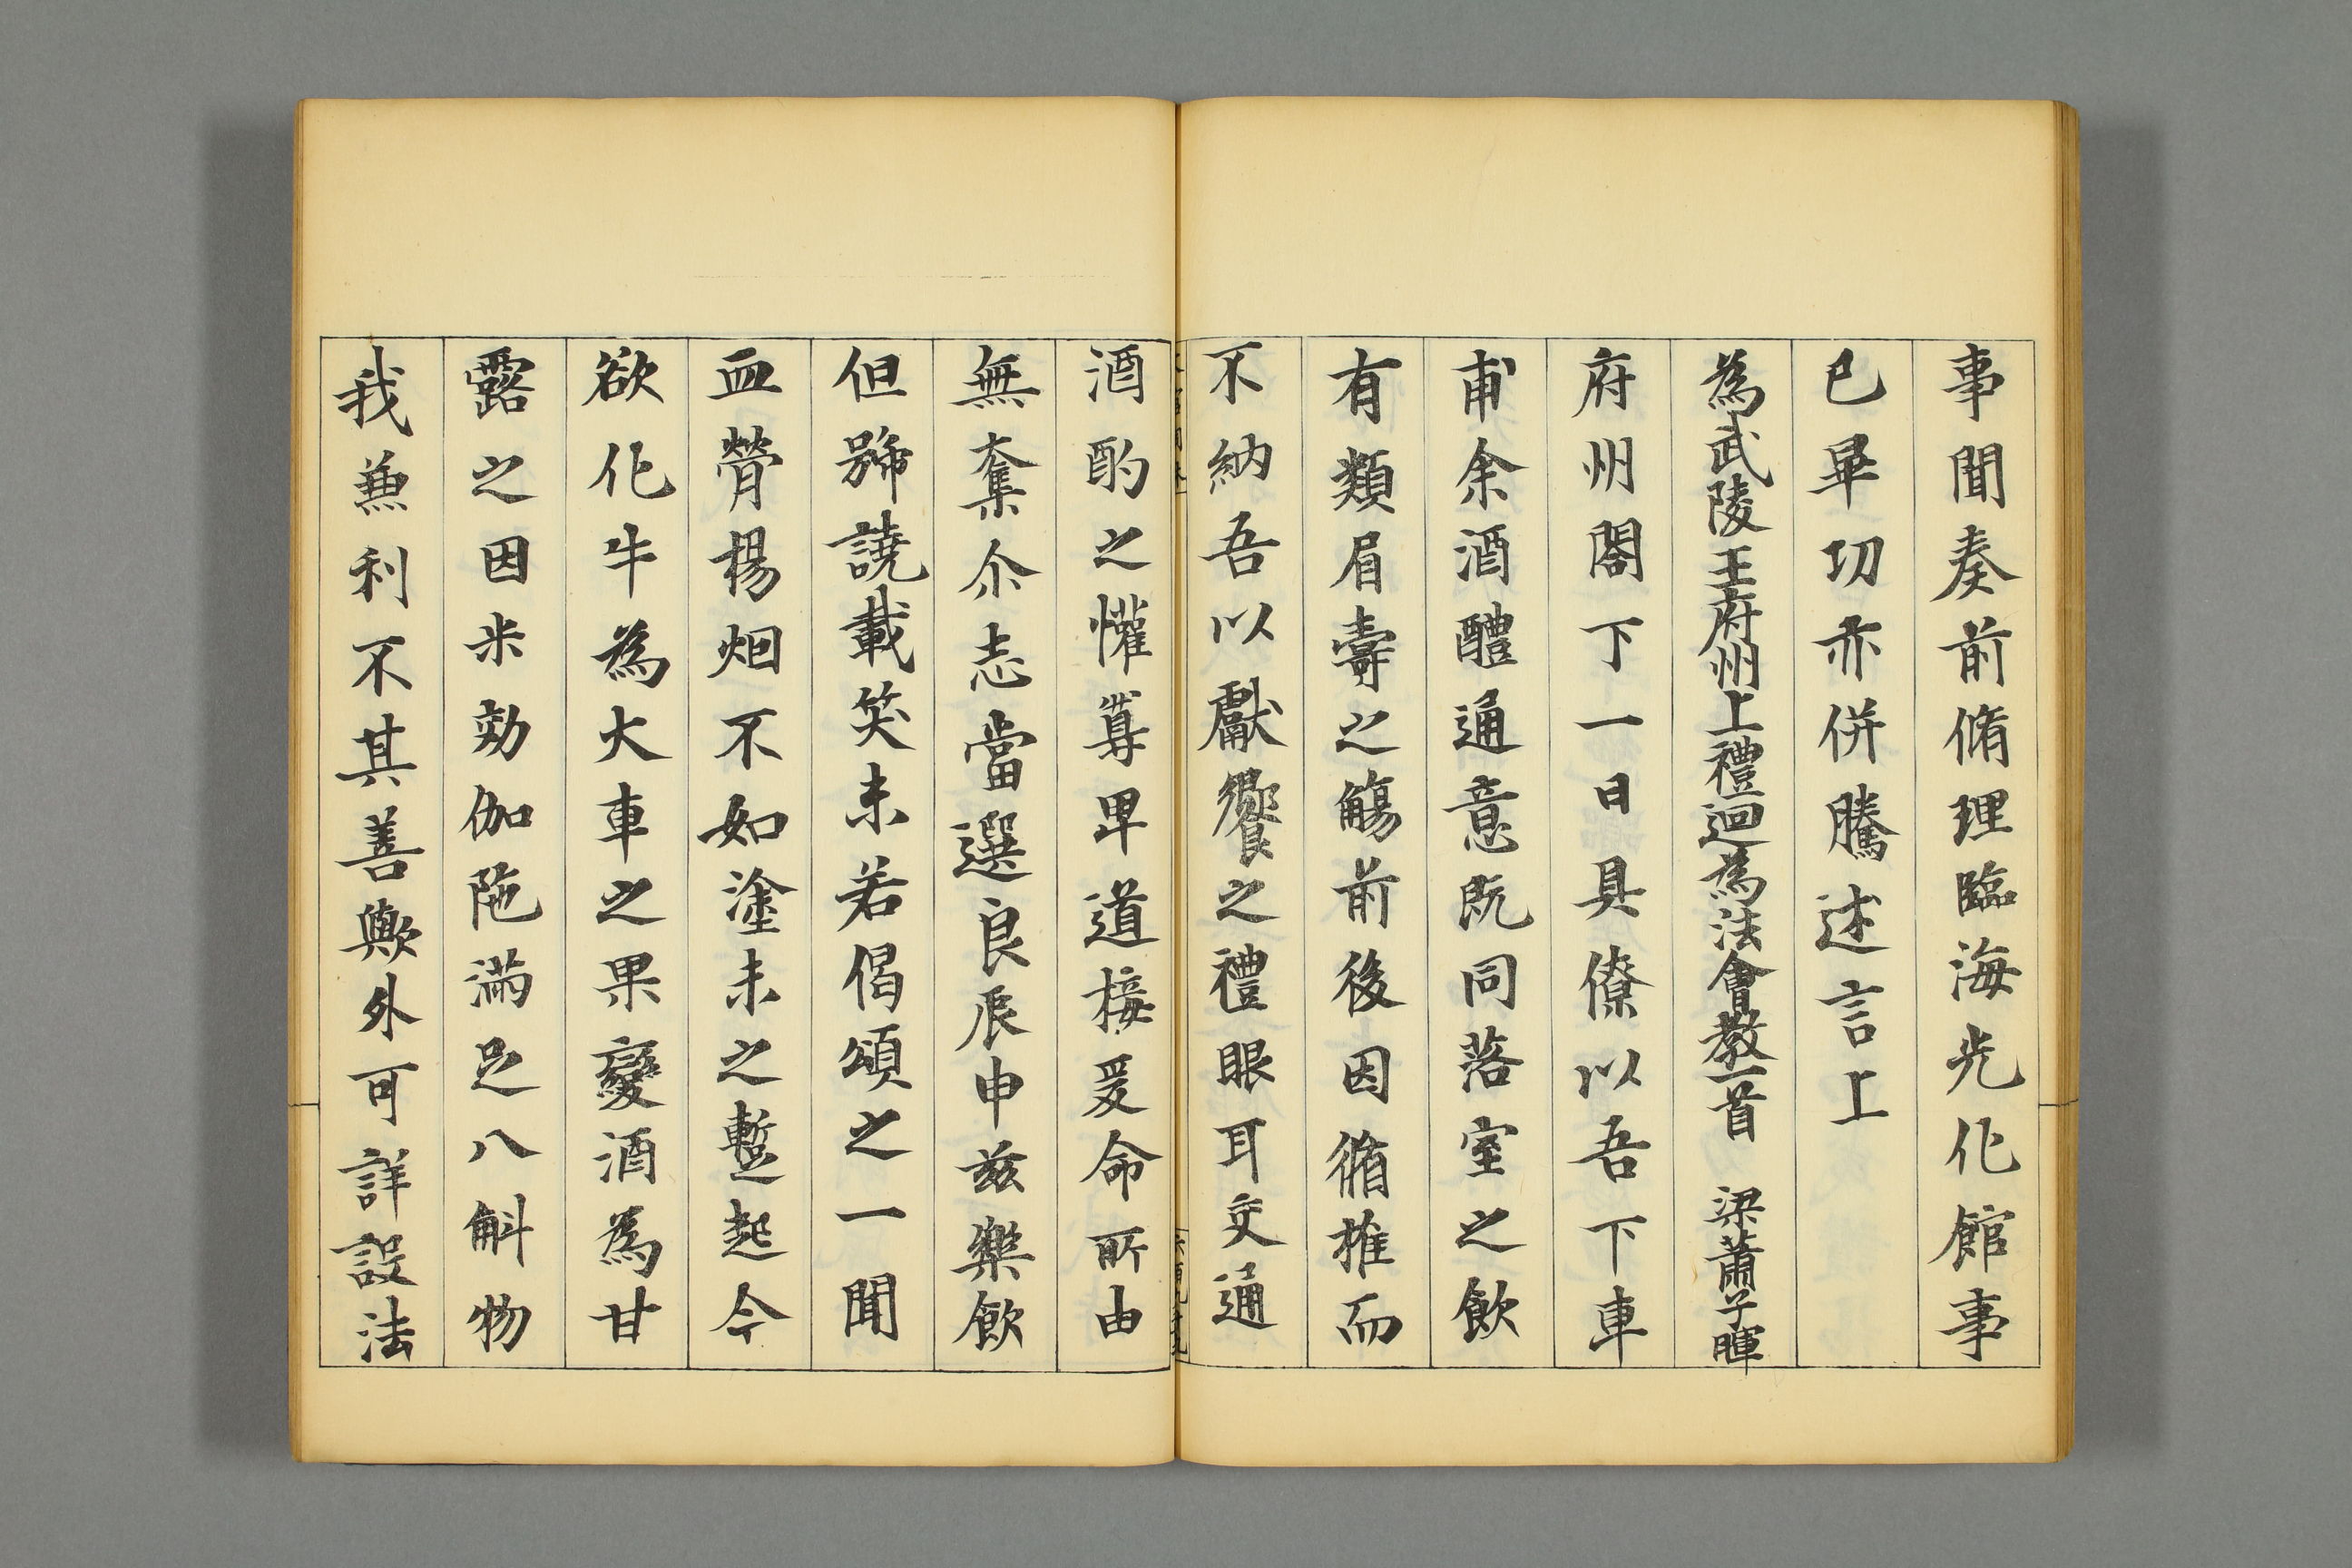 事聞奏前脩理臨海光化館事
已畢切亦併騰述言上
為武陵王府州上禮迴為法會教一首 梁蕭子暉
府州閤下一日具僚以吾下車
甫余酒醴通意既同落室之飲
有類眉壽之觴前後因循推而
不納吾以獻饗之禮眼耳交通
酒酌之懽尊卑道接爰命所由
無奪尒志當選良辰申玆樂飲
但號譊載笑未若偈頌之一聞
血膋揚烟不如塗末之蹔起今
欲化牛為大車之果變酒為甘
露之因米効伽陁滿足八斛物
我兼利不其善歟外可詳設法